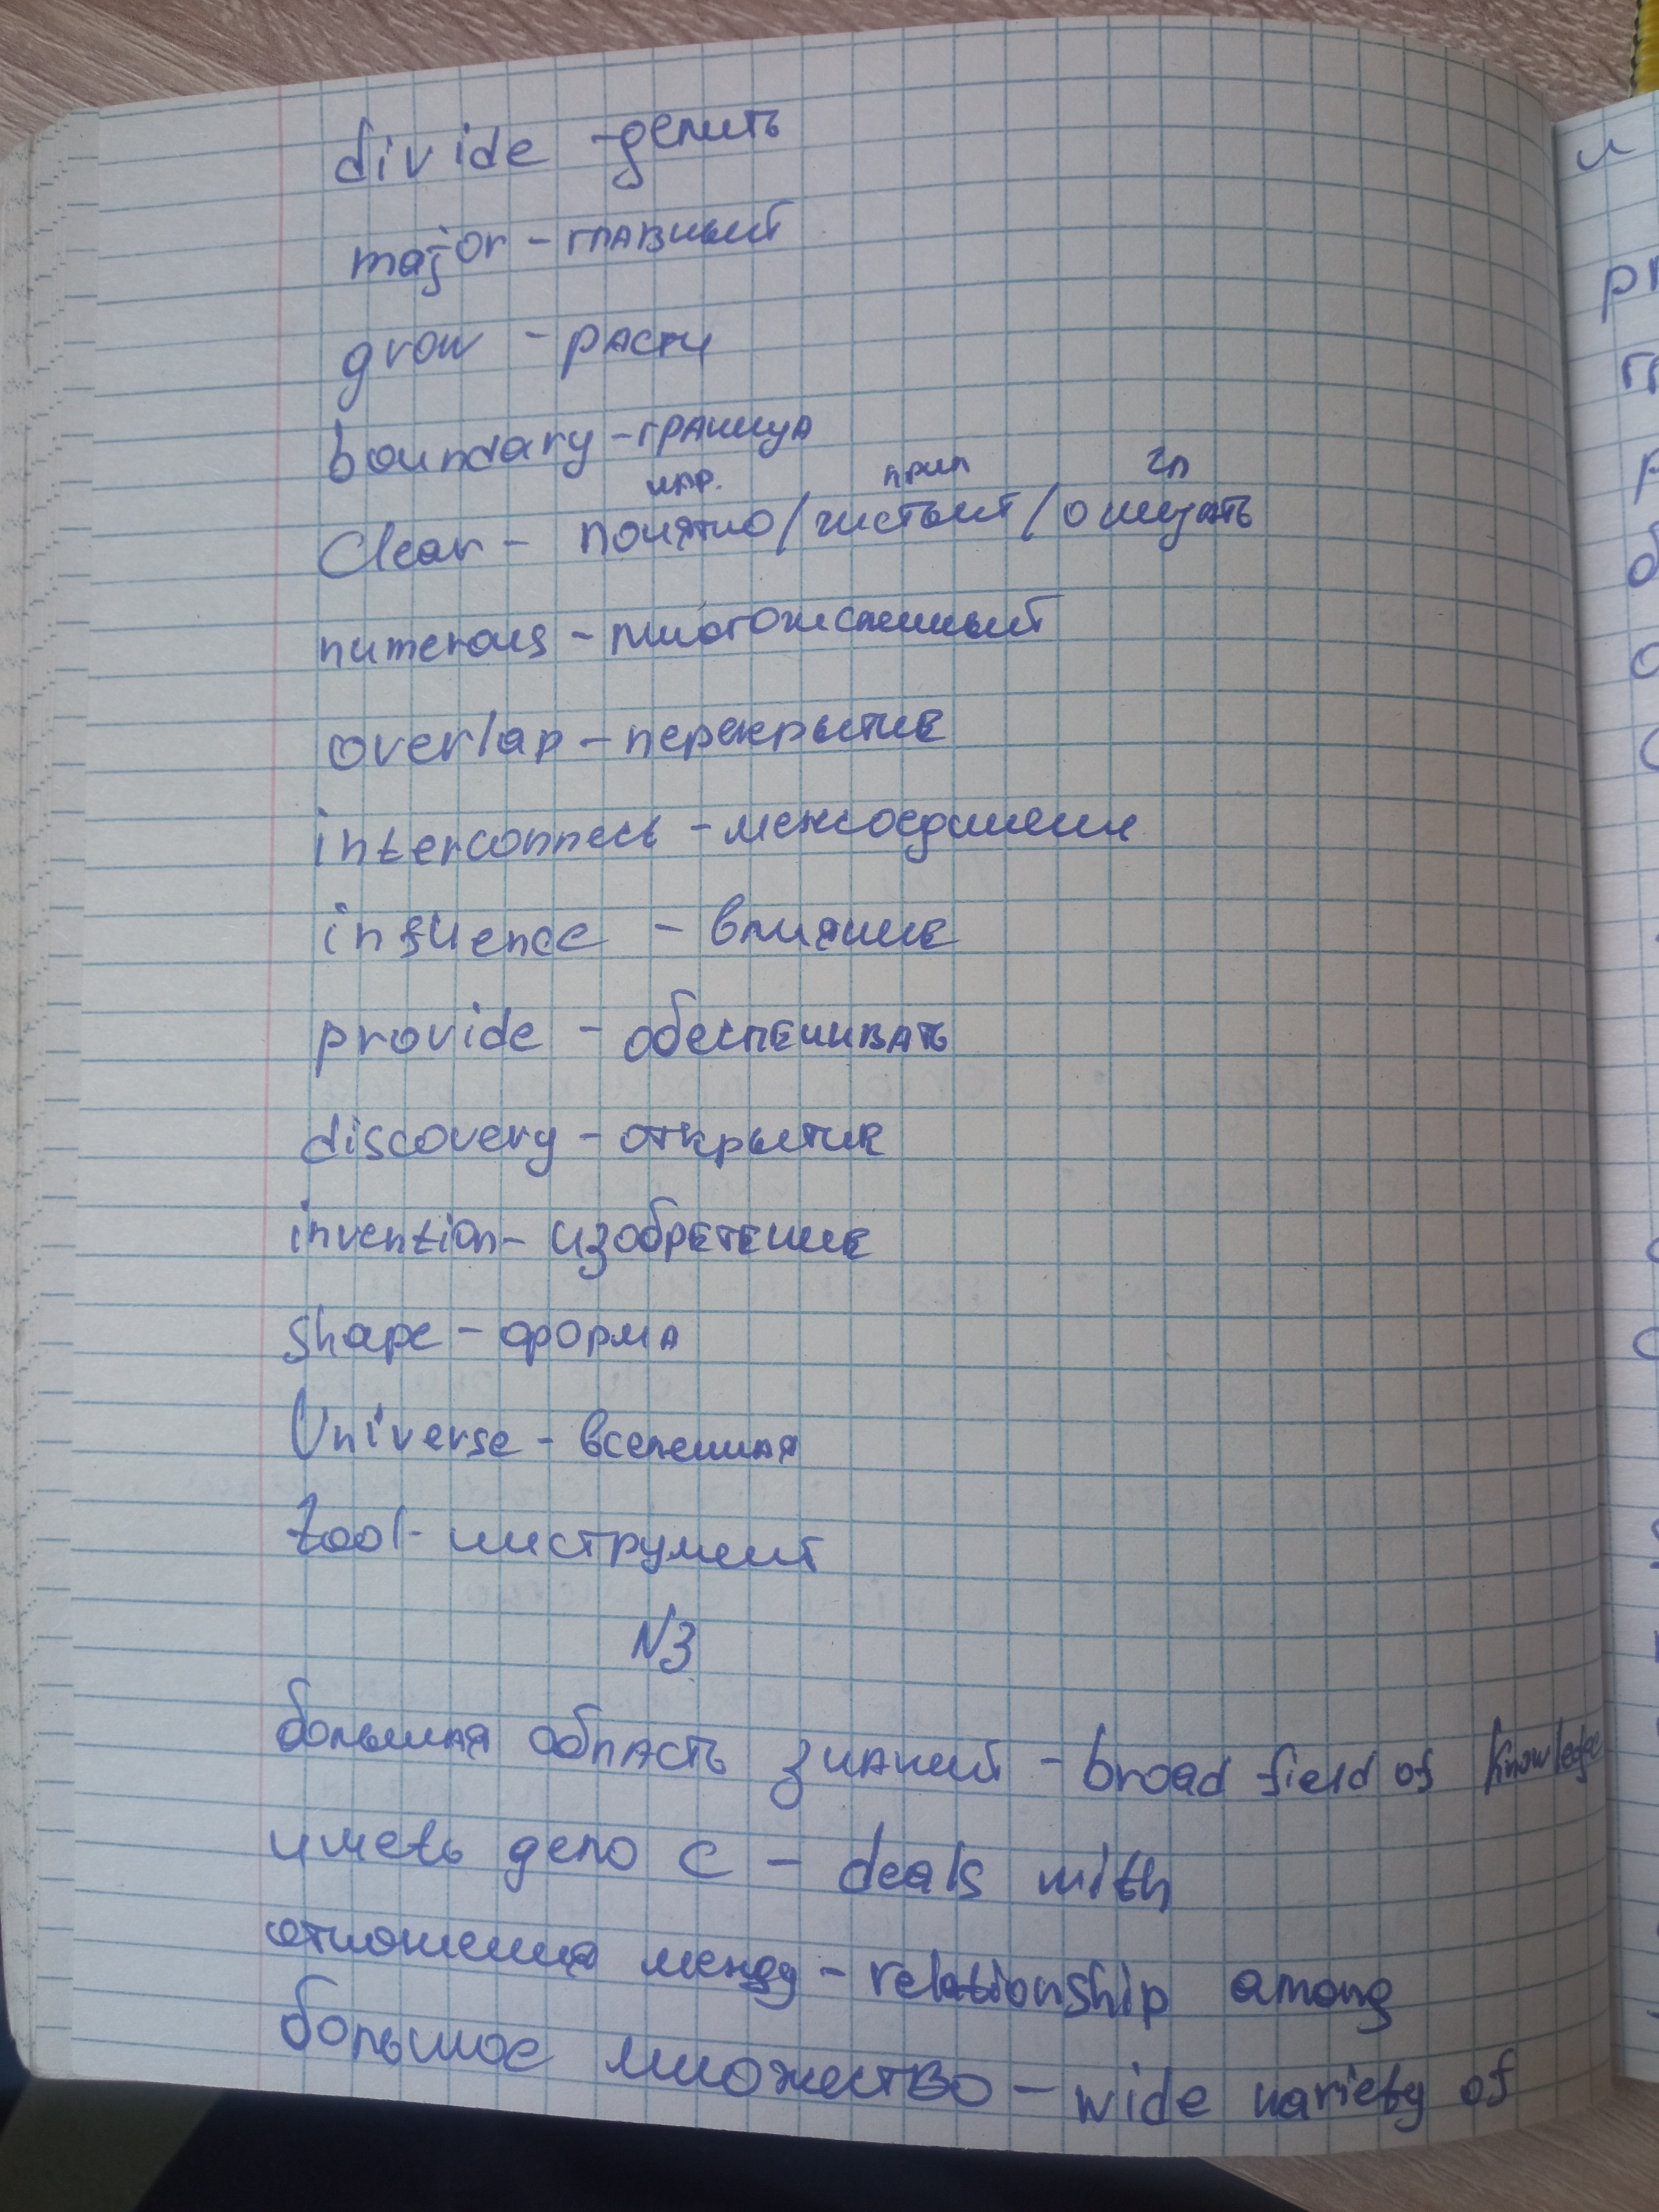 divide - делить
major - главный
grow - расти
boundary - граница
нар. прил гл
Clear - понятно / чистый / очищать
numerous - многочисленный
overlap - перекрытие
interconnect - межсоединени
influence - влияние
provide - обеспечивать
discovery - открытие
invention - изобретение
shape - форма
Universe - вселенная
tool - инструмент
N3
большая область знаний - broad field of knowledge
иметь дело с - deals with
отношения между - relationship among
большое множество - wide variety of